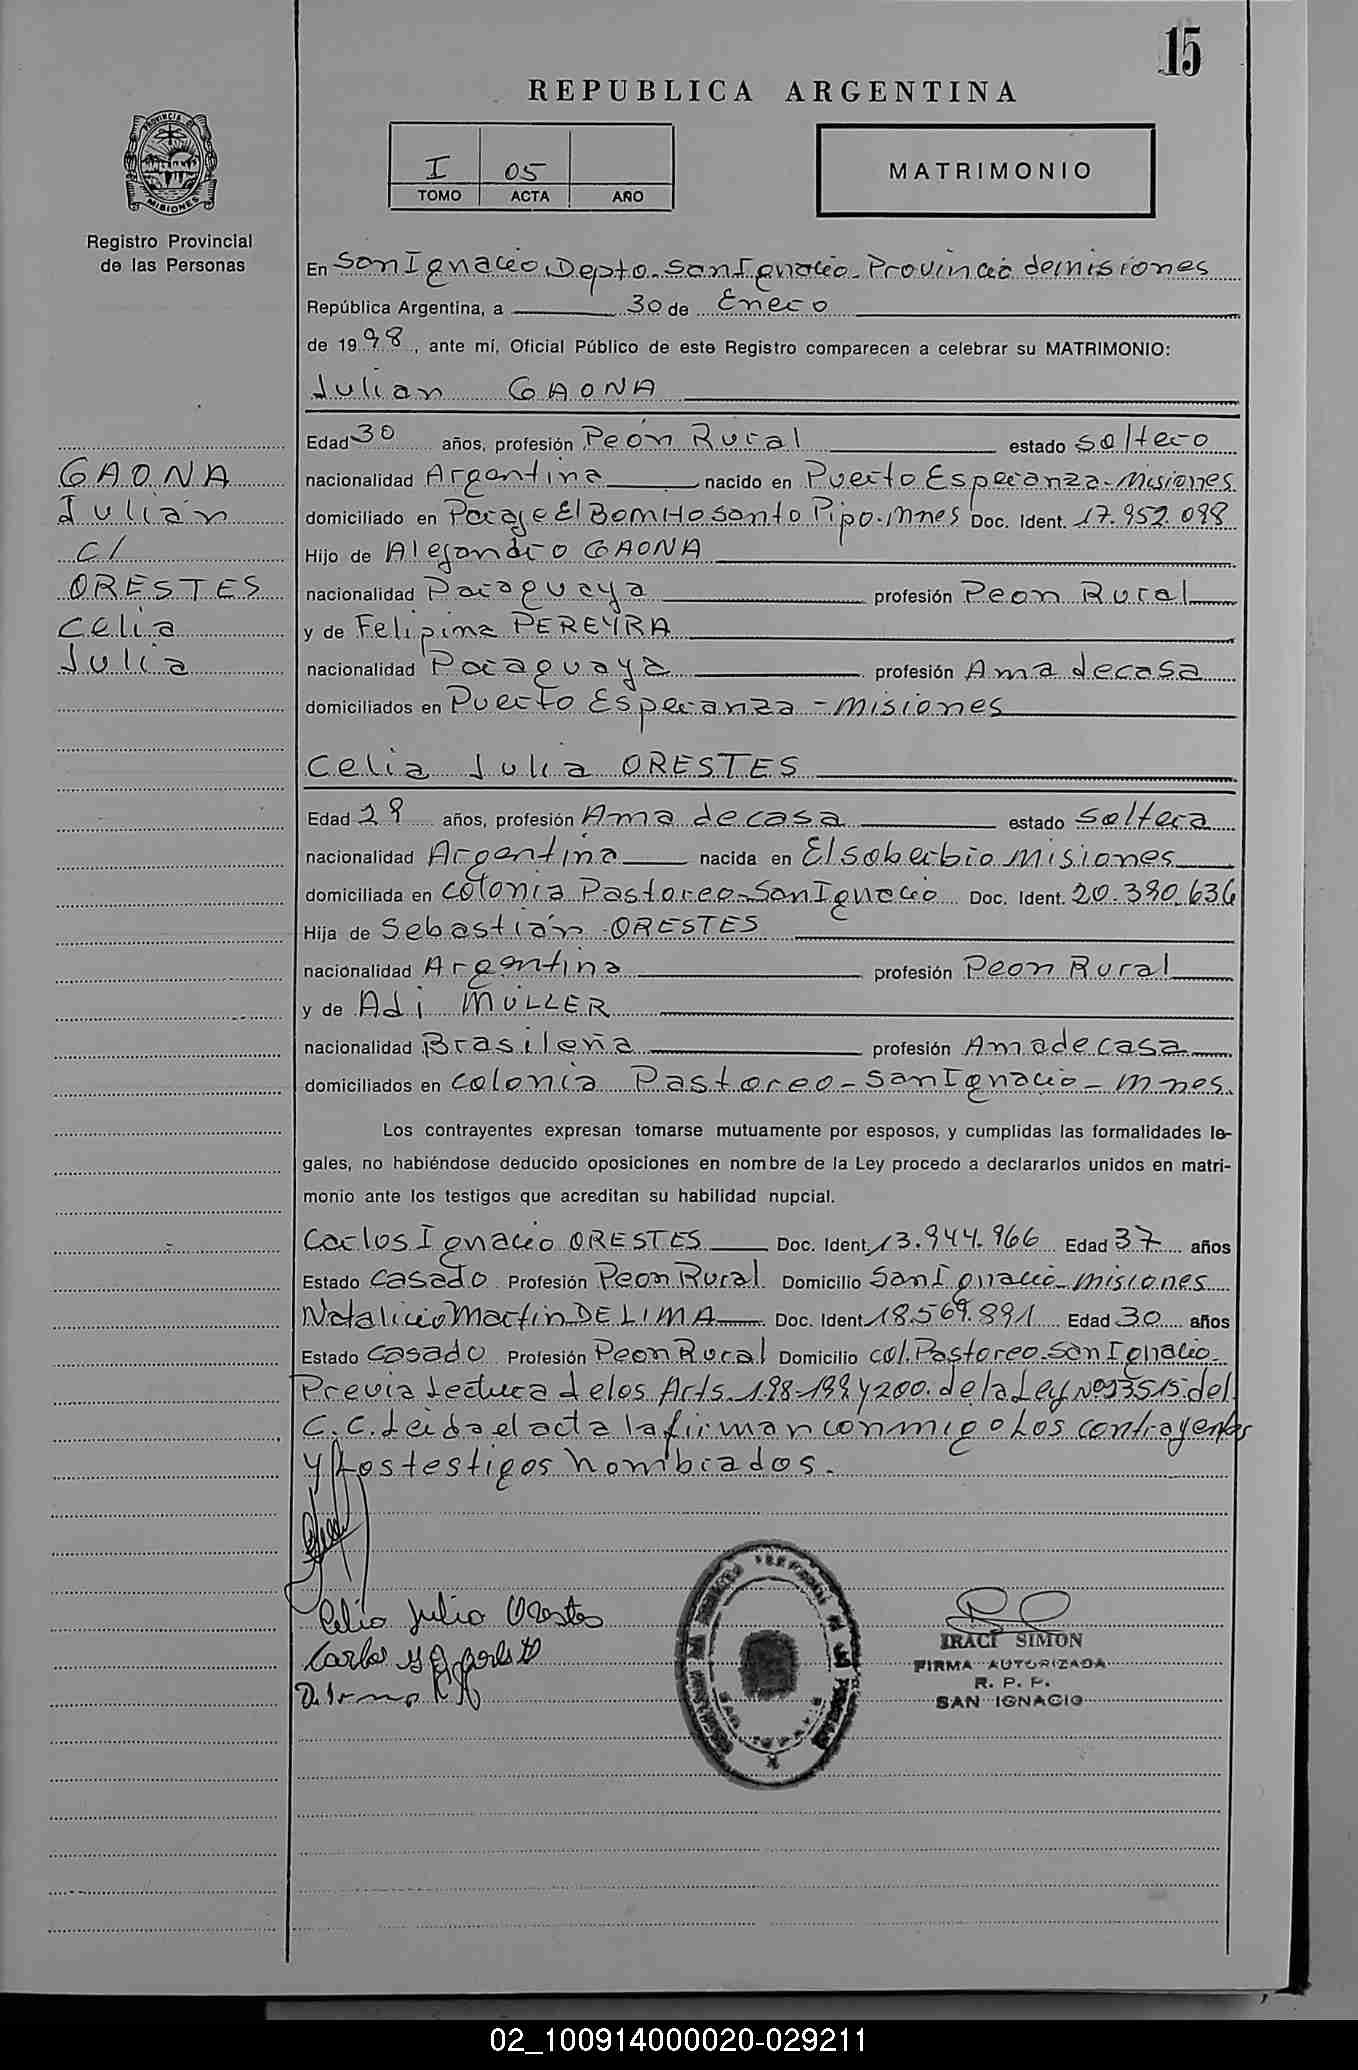 15
REPUBLICA ARGENTINA
I 05
TOMO ACTA AÑO
MATRIMONIO
PROVINCIA DE MISIONES
Registro Provincial
de las Personas
En San Ignacio, Depto. San Ignacio. Provincia de misiones
República Argentina, a 30 de Enero
de 1998, ante mí, Oficial Público de este Registro comparecen a celebrar su MATRIMONIO:
Julian GAONA
Edad 30 años, profesión Peón Rural estado soltero
nacionalidad Argentina nacido en Puerto Esperanza-Misiones
domiciliado en Paraje El Bonito Santo Pipo. Mnes Doc. Ident. 17.952.098
Hijo de Alejandro GAONA
nacionalidad Paraguaya profesión Peon Rural
y de Felipina PEREYRA
nacionalidad Paraguaya profesión Ama de casa
domiciliados en Puerto Esperanza - misiones
GAONA
Julián
c/
ORESTES
Celia
Julia
Celia Julia ORESTES
Edad 29 años, profesión Ama de casa estado soltera
nacionalidad Argentina nacida en El soberbio Misiones
domiciliada en colonia Pastoreo-San Ignacio Doc. Ident. 20.390.636
Hija de Sebastián ORESTES
nacionalidad Argentina profesión Peon Rural
y de Adi MÜLLER
nacionalidad Brasileña profesión Ama de casa
domiciliados en colonia Pastoreo - San Ignacio - mnes.
Los contrayentes expresan tomarse mutuamente por esposos, y cumplidas las formalidades le-
gales, no habiéndose deducido oposiciones en nombre de la Ley procedo a declararlos unidos en matri-
monio ante los testigos que acreditan su habilidad nupcial.
Carlos Ignacio ORESTES Doc. Ident. 13.944.966 Edad 37 años
Estado casado Profesión Peon Rural Domicilio San Ignacio-misiones
Natalicio Martin DE LIMA Doc. Ident. 18.569.891 Edad 30 años
Estado casado Profesión Peon Rural Domicilio col. Pastoreo-San Ignacio-
Previa lectura de los Arts. 198-199 y 200. de la Ley Nº 23515 del
C.C. Leida el acta la firman conmigo Los contrayentes
y Los testigos nombrados.
Celia Julia Orestes
Carlos
IRACI SIMON
FIRMA AUTORIZADA
R. P. P.
SAN IGNACIO
02_100914000020-029211